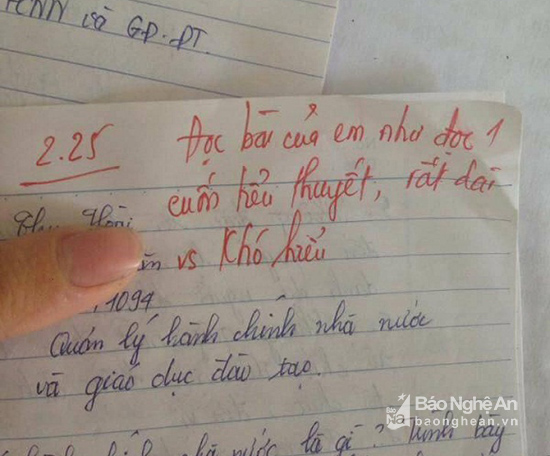 và GD-ĐT.
2.25 Đọc bài của em như đọc 1
cuốn tiểu thuyết, rất dài
vs khó hiểu
1094
Quản lý hành chính nhà nước
và giáo dục đào tạo.
nhà nước là gì? trình bày
Báo Nghệ An
baonghean.vn